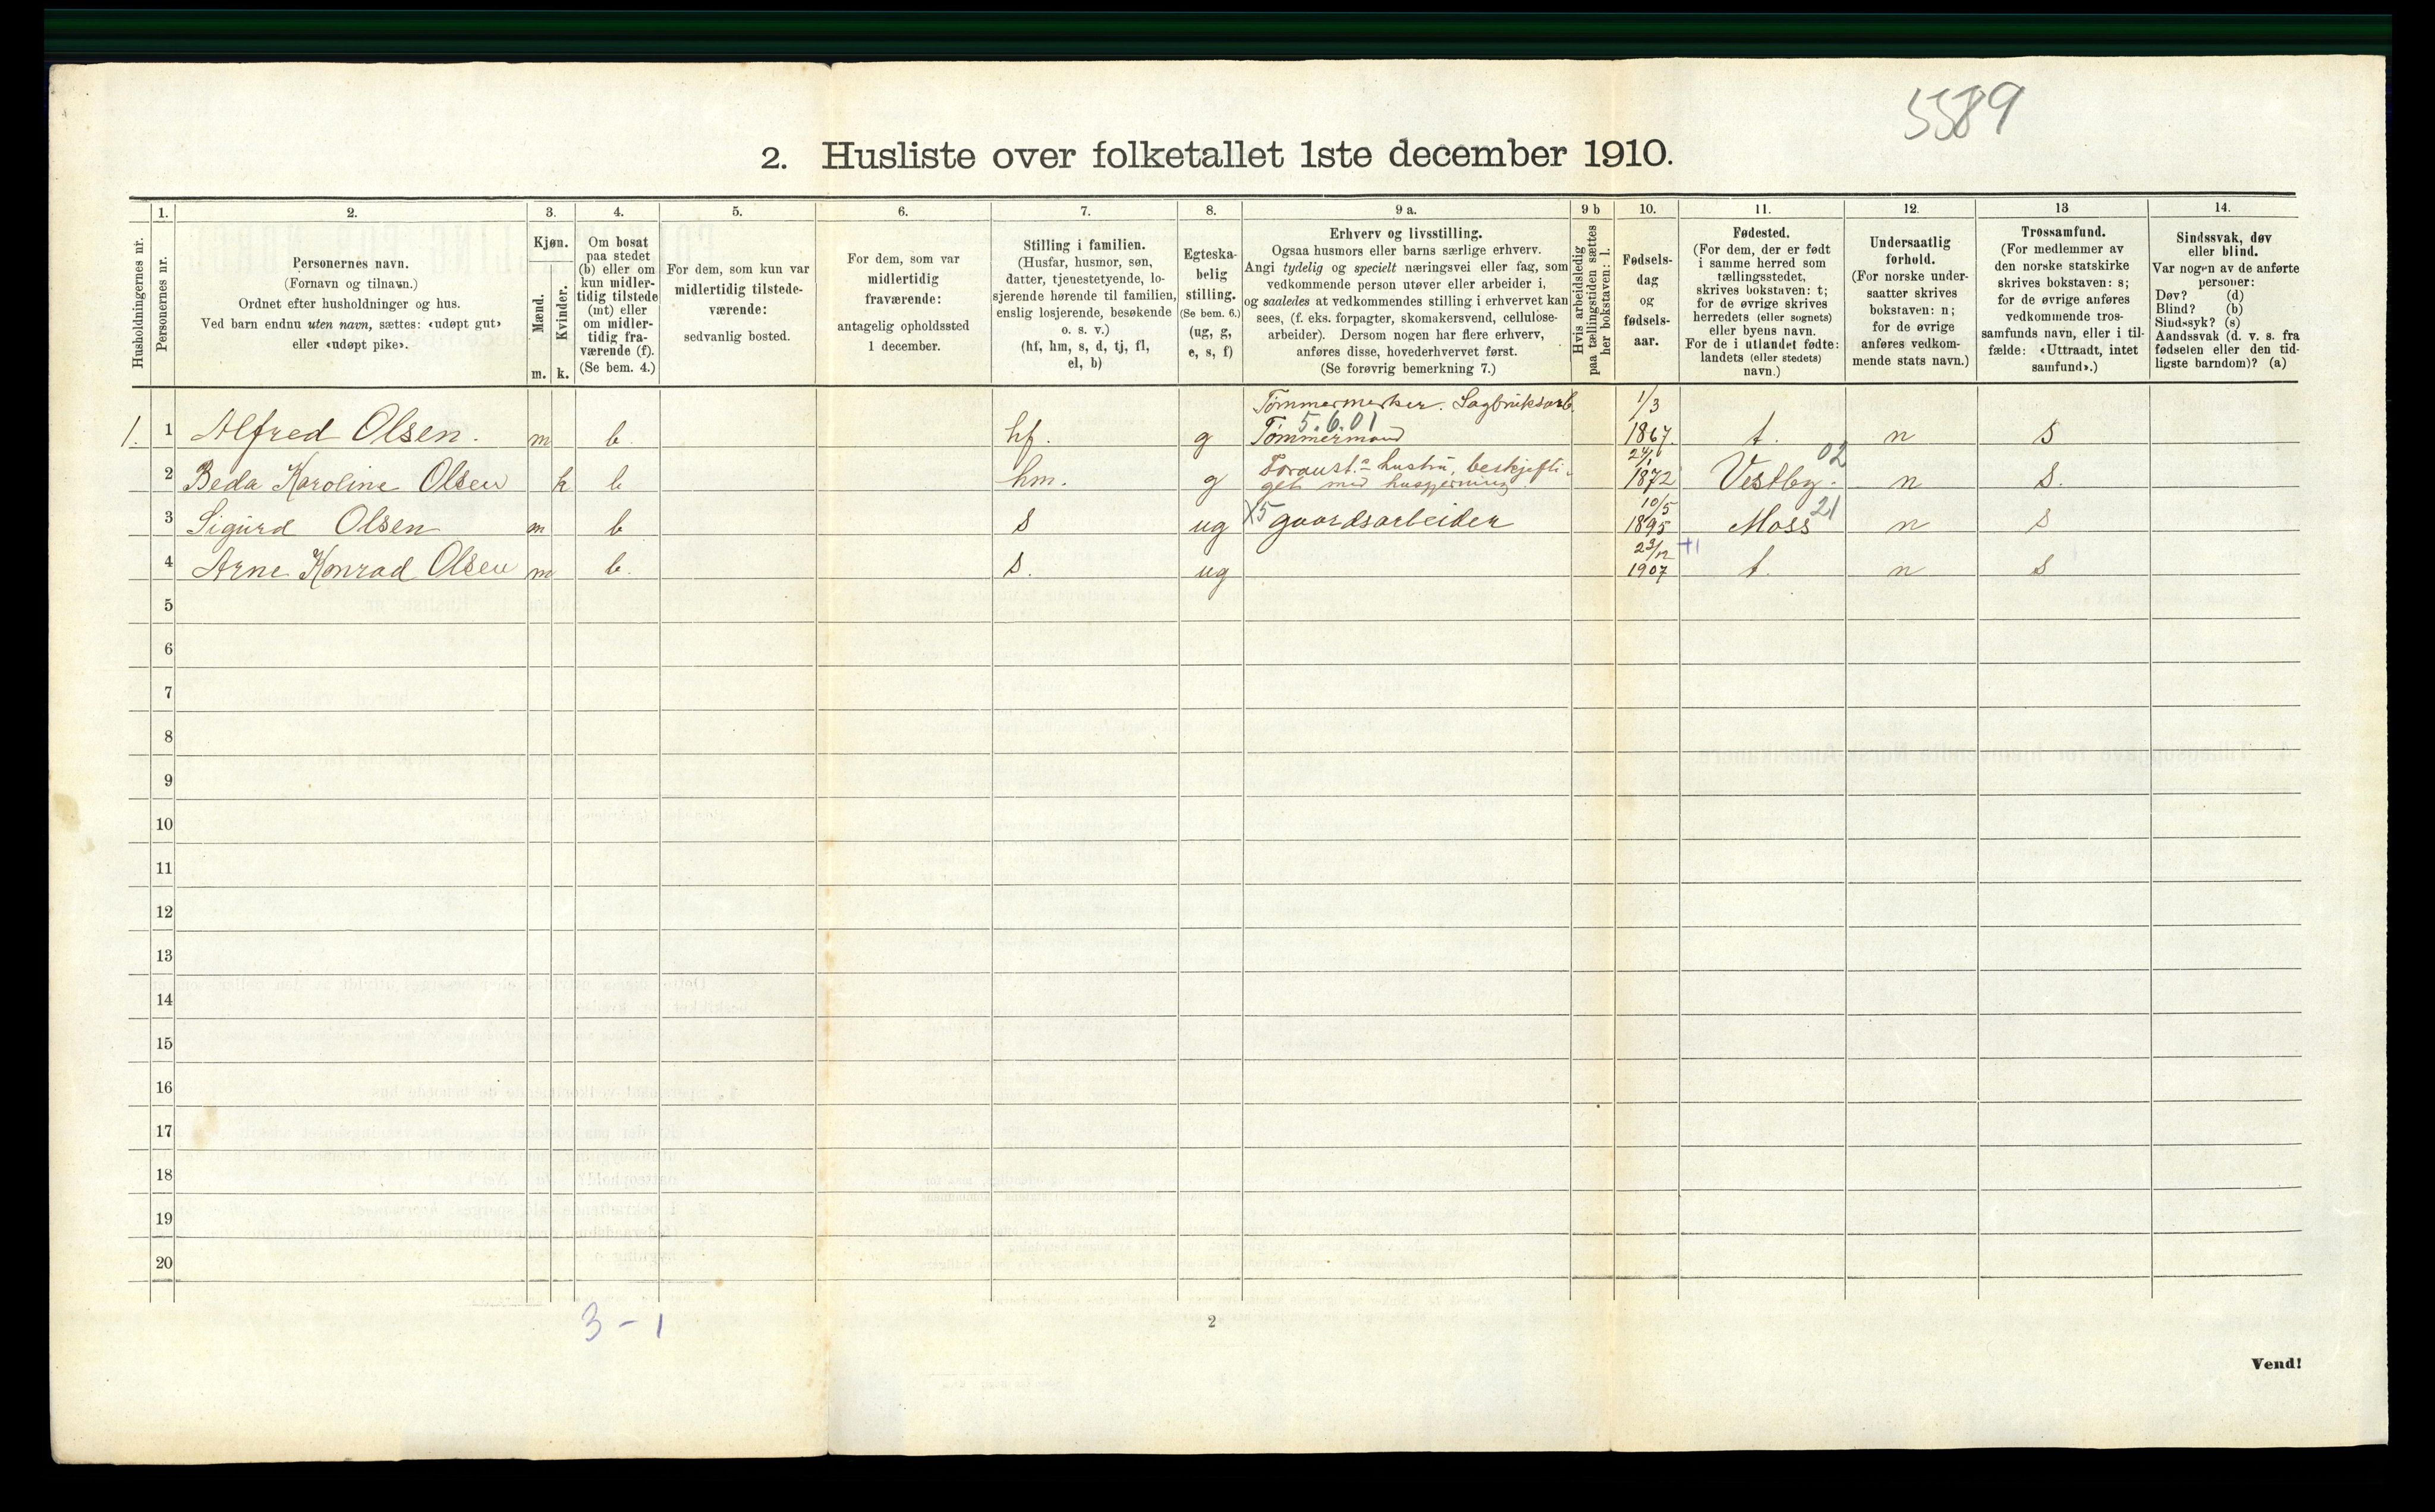 5589
2. Husliste over folketallet 1ste december 1910.
Husholdningernes nr.
1.
Personernes nr.
2.
Personernes navn.
(Fornavn og tilnavn.)
Ordnet efter husholdninger og hus.
Ved barn endnu uten navn, sættes: «udøpt gut»
eller «udøpt pike».
3.
Kjøn.
Mænd.
Kvinder.
m. k.
4.
Om bosat
paa stedet
(b) eller om
kun midler-
tidig tilstede
(mt) eller
om midler-
tidig fra-
værende (f).
(Se bem. 4.)
5.
For dem, som kun var
midlertidig tilstede-
værende:
sedvanlig bosted.
6.
For dem, som var
midlertidig
fraværende:
antagelig opholdssted
1 december.
7.
Stilling i familien.
(Husfar, husmor, søn,
datter, tjenestetyende, lo-
sjerende hørende til familien,
enslig losjerende, besøkende
o. s. v.)
(hf, hm, s, d, tj, fl,
el, b)
8.
Egteska-
belig
stilling.
(Se bem. 6.)
(ug, g,
e, s, f)
9 a.
Erhverv og livsstilling.
Ogsaa husmors eller barns særlige erhverv.
Angi tydelig og specielt næringsvei eller fag, som
vedkommende person utøver eller arbeider i,
og saaledes at vedkommendes stilling i erhvervet kan
sees, (f. eks. forpagter, skomakersvend, cellulose-
arbeider). Dersom nogen har flere erhverv,
anføres disse, hovederhvervet først.
(Se forøvrig bemerkning 7.)
9 b
Hvis arbeidsledig
paa tællingstiden sættes
her bokstaven: l.
10.
Fødsels-
dag
og
fødsels-
aar.
11.
Fødested.
(For dem, der er født
i samme herred som
tællingsstedet,
skrives bokstaven: t;
for de øvrige skrives
herredets (eller sognets)
eller byens navn.
For de i utlandet fødte:
landets (eller stedets)
navn.)
12.
Undersaatlig
forhold.
(For norske under-
saatter skrives
bokstaven: n;
for de øvrige
anføres vedkom-
mende stats navn.)
13
Trossamfund.
(For medlemmer av
den norske statskirke
skrives bokstaven: s;
for de øvrige anføres
vedkommende tros-
samfunds navn, eller i til-
fælde: «Uttraadt, intet
samfund».)
14.
Sindssvak, døv
eller blind.
Var nogen av de anførte
personer:
Døv? (d)
Blind? (b)
Sindssyk? (s)
Aandssvak (d. v. s. fra
fødselen eller den tid-
ligste barndom)? (a)
Tømmermerker. Sagbruksarb. 1/3
5.6.01
1. 1 Alfred Olsen. m b. hf. g Tømmermand 1867. t. n s
Foraust.s hustru, beskjefti- 24/1 02
2 Beda Karoline Olsen k b hm. g get med husgjerning. 1872 Vestby. n s.
10/5 21
3 Sigurd Olsen m b s ug X5 gaardsarbeider 1895 Moss n s
23/12 +1
4 Arne Konrad Olsen m b. s. ug 1907 t. n s
5
6
7
8
9
10
11
12
13
14
15
16
17
18
19
20
3 - 1
2
Vend!